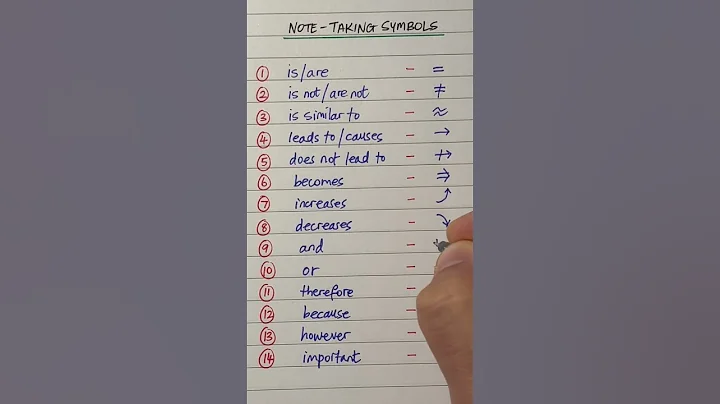 NOTE-TAKING SYMBOLS
① is/are - =
② is not/are not - ≠
③ is similar to - ≈
④ leads to/causes - →
⑤ does not lead to - ↛
⑥ becomes - ⇒
⑦ increases - ⤴
⑧ decreases - ⤵
⑨ and -
⑩ or -
⑪ therefore -
⑫ because -
⑬ however -
⑭ important -